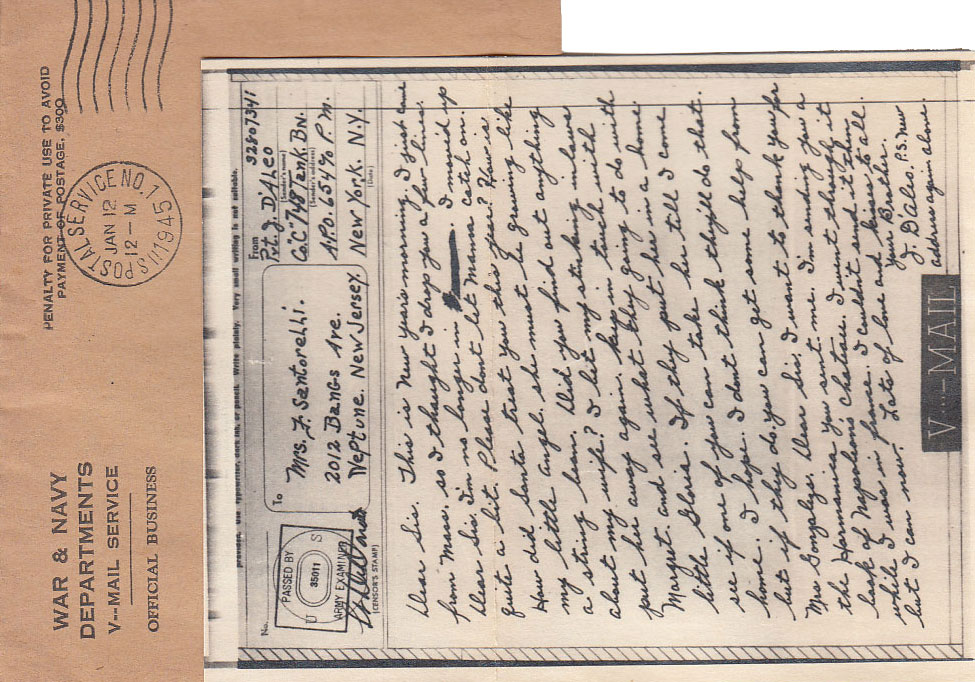 WAR & NAVY
DEPARTMENTS
V···—MAIL SERVICE
OFFICIAL BUSINESS
PENALTY FOR PRIVATE USE TO AVOID
PAYMENT OF POSTAGE, $300
U.S. POSTAL SERVICE NO. 1
JAN 12
12 - M
1945
provided. Use typewriter, dark ink, or pencil. Write plainly. Very small writing is not suitable.
No.
PASSED BY
U S
35011
ARMY EXAMINER
(CENSOR'S STAMP)
To
Mrs. F. Santorelli.
2012 Bangs Ave.
Neptune. New Jersey.
From
Pvt. J. D'Aleo 32801341
(Sender's name)
Co. "C" 748 Tank. BN.
(Sender's address)
A.P.O. 654 % P.M.
New York. N.Y.
(Date)
Dear Sis. This is New year's morning. I just came
from Mass. so I thought I drop you a few lines.
Dear Sis I'm no longer in I moved up
quite a bit. Please dont let Mama catch on.
How did Santa treat you this year? How is
my little angel. she must be growing like
a string bean. Did you find out anything
about my wife? I bet my stinking in-laws
put her away again. Kep in tuch with
Marget. and see what they going to do with
little Gloria. If they put her in a home
see if one of you can take her till I come
home. I hope. I dont think they'll do that.
but if they do. you can get some help from
Mrs Gonzalys. Dear Sis. I want to thank you for
the Harmonica you sent me. I'm sending you a
book of Napoleons Chateau. I went though it
while I was in France. I culdn't send it then
but I can now. Lots of love and kisses to all.
Your Brother.
J. D'Aleo. P.S. New
address again above
V···—MAIL